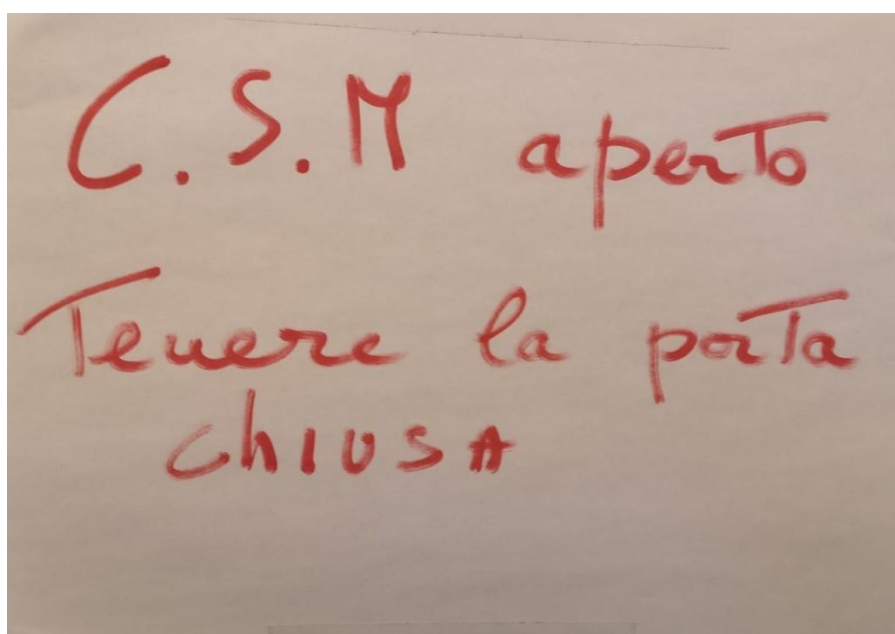 C.S.M aperto
Tenere la porta
chiusa